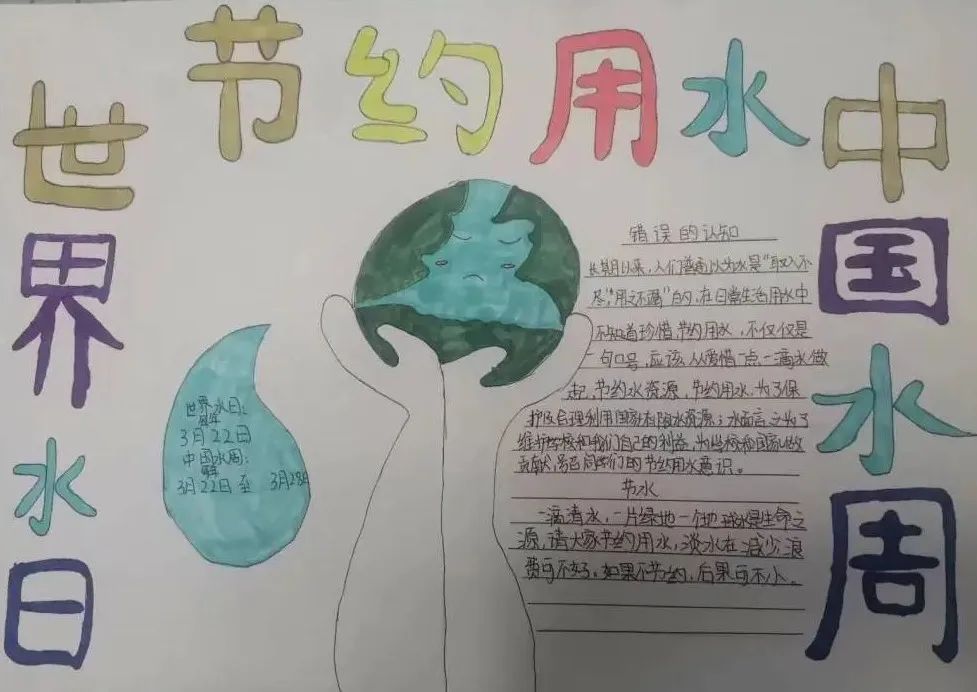 节约用水
世界水日
中国水周
世界水日：
每年
3月22日
中国水周：
每年
3月22日至 3月28日
错误的认知
长期以来，人们普遍以为水是“取之不
尽，“用之不竭”的，在日常生活用水中
不知道珍惜节约用水，不仅仅是
一句口号，应该从爱惜一点一滴水做
起，节约水资源，节约用水，为了保
护及合理利用国家有限水资源；水
维护学校和我们自己的利益，为学校和国家做
贡献，号召同学们的节约用水意识。
节水
一滴清水，一片绿地一个地球水是生命之
源，请大家节约用水，淡水在减少，浪
费可不好。如果不节约，后果可不小。